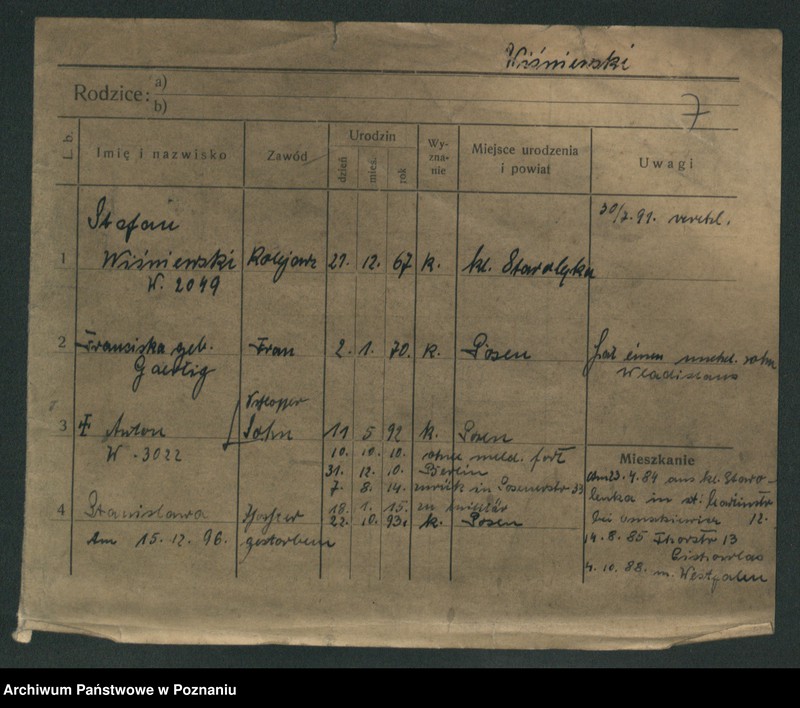 Wiśniewski
Rodzice: a)
b)
7
L. b.
Imię i nazwisko
Zawód
Urodzin
dzień
mieś.
rok
Wy-
zna-
nie
Miejsce urodzenia
i powiat
Uwagi
30/7. 91. verehl.
Stefan
1 Wiśniewski Kolejarz 21. 12. 67 k. kl. Starolęka
W. 2049
2 Franziska geb. Frau 2. 1. 70. k. Posen Hat einen unehel. sohn
Wladislaus
Schlosser
3 Anton Sohn 11 5 92 k. Posen
W. 3022
10. 10. 10. ohne meld. fort
31. 12. 10. Berlin
7. 8. 14. zurück in Posenerstr 33
18. 1. 15. zu militär
4 Stanislawa Tochter 22. 10. 93. k. Posen
Am 15. 12. 96. gestorben
Mieszkanie
Am 23. 4. 84 aus kl. Staro-
lenka in st. Martinstr
bei 12.
14. 8. 85 Thorstr 13
4. 10. 88. n. Westfalen
Archiwum Państwowe w Poznaniu